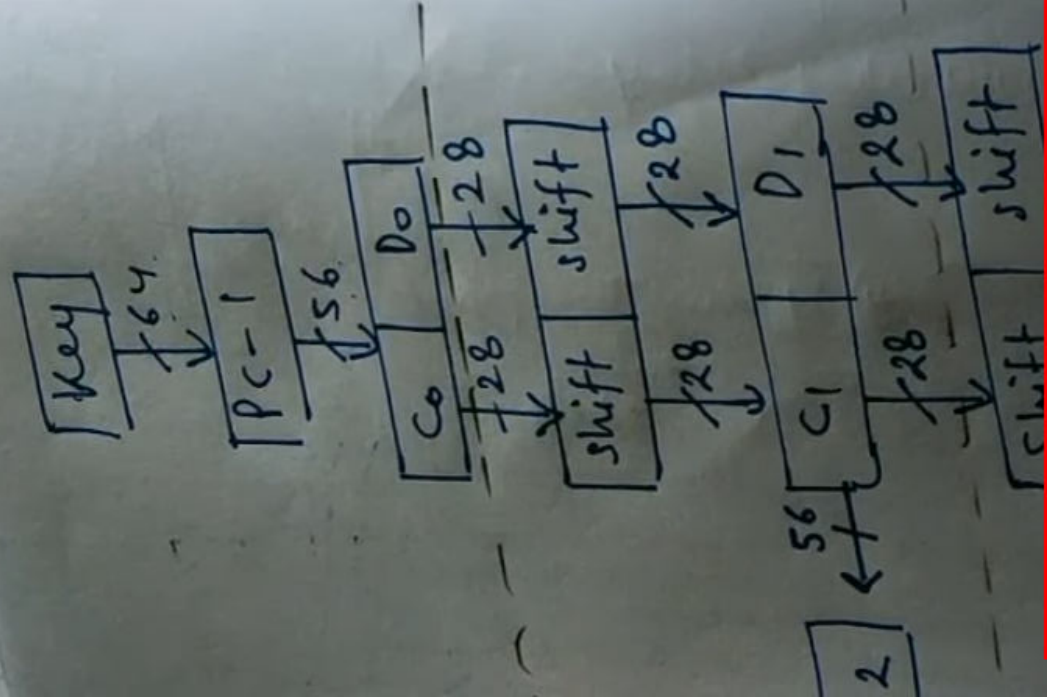 Key
64
PC-1
56
C0 D0
28 28
shift shift
28 28
C1 D1
56
28 28
shift shift
2